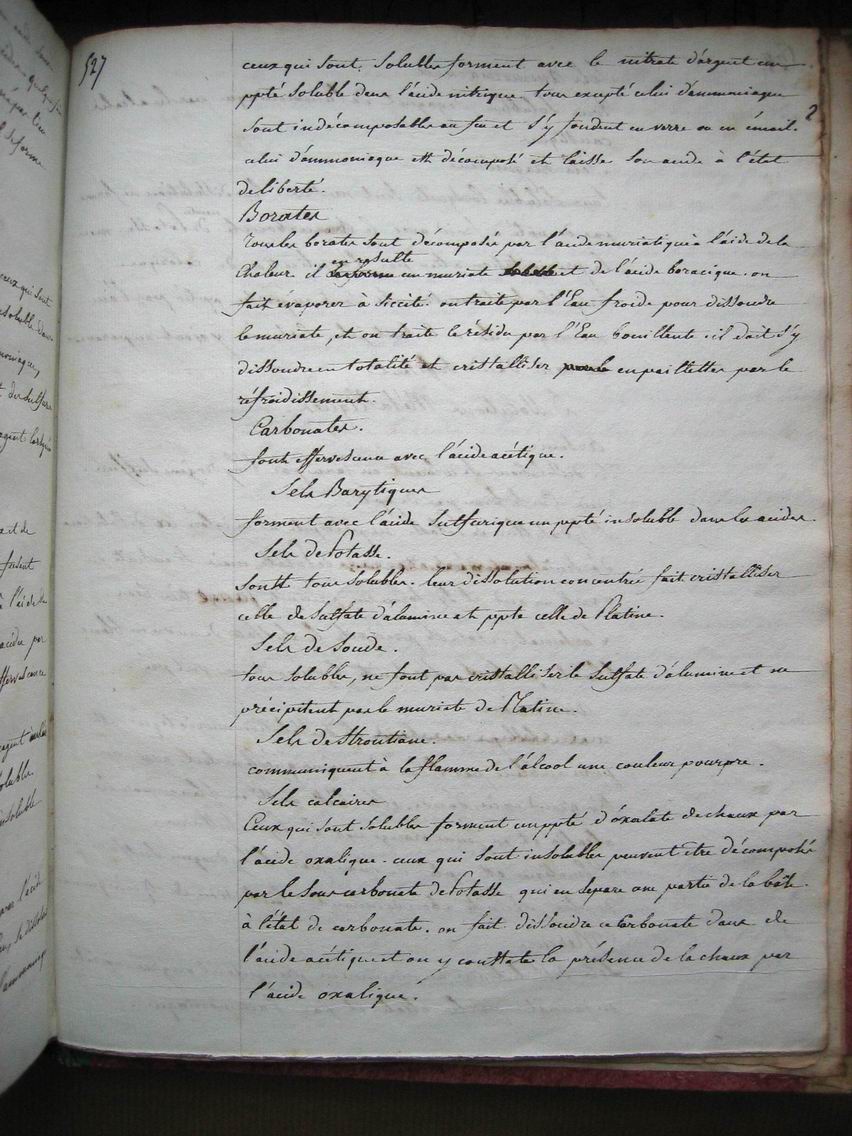 527
2
ceux qui sont solubles forment avec le nitrate d'argent un
ppté soluble dans l'acide nitrique tous excepté celui d'ammoniaque
sont indécomposables au feu et s'y fondent en verre ou en émail.
celui d'ammoniaque est décomposé et laisse son acide à l'état
de liberté.
Borates
Tous les borates sont décomposés par l'acide muriatique à l'aide de la
en resulte
chaleur il un muriate et de l'acide boracique. on
fait evaporer à siccité. on traite par l'Eau froide pour dissoudre
le muriate, et on traite le résidu par l'Eau bouillante. il doit s'y
dissoudre en totalité et cristalliser en paillettes par le
réfroidissement.
Carbonates.
font effervescence avec l'acide acétique.
Sels Barytiques
forment avec l'acide Sulfurique un ppté insoluble dans les acides.
Sels de Potasse.
sontt tous solubles. leur dissolution concentrée fait cristalliser
celle de Sulfate d'alumine et ppte celle de Platine.
Sels de Soude.
tous solubles, ne font pas cristalliser le Sulfate d'alumine et ne
précipitent pas le muriate de Platine.
Sels de Strontiane.
communiquent à la flamme de l'alcool une couleur pourpre.
Sels calcaires
Ceux qui sont solubles forment un ppté d'oxalate de chaux par
l'acide oxalique. ceux qui sont insolubles peuvent être décomposés
par le sous carbonate de Potasse qui en separe une partie de la bâse
à l'état de carbonate. on fait dissoudre ce Carbonate dans de
l'acide acétique et on y constate la présence de la chaux par
l'acide oxalique.